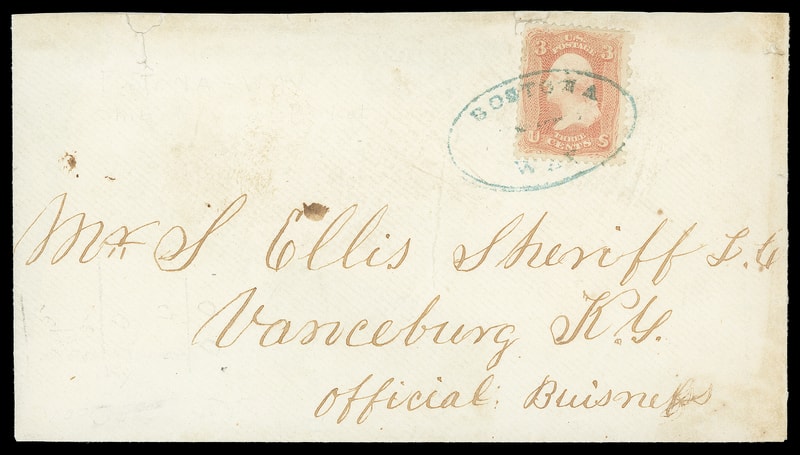 3 U.S. POSTAGE 3
U THREE CENTS S
BOSTONA
WAY
Mr S Ellis Sheriff L. C
Vanceburg K.Y.
Official Buisness